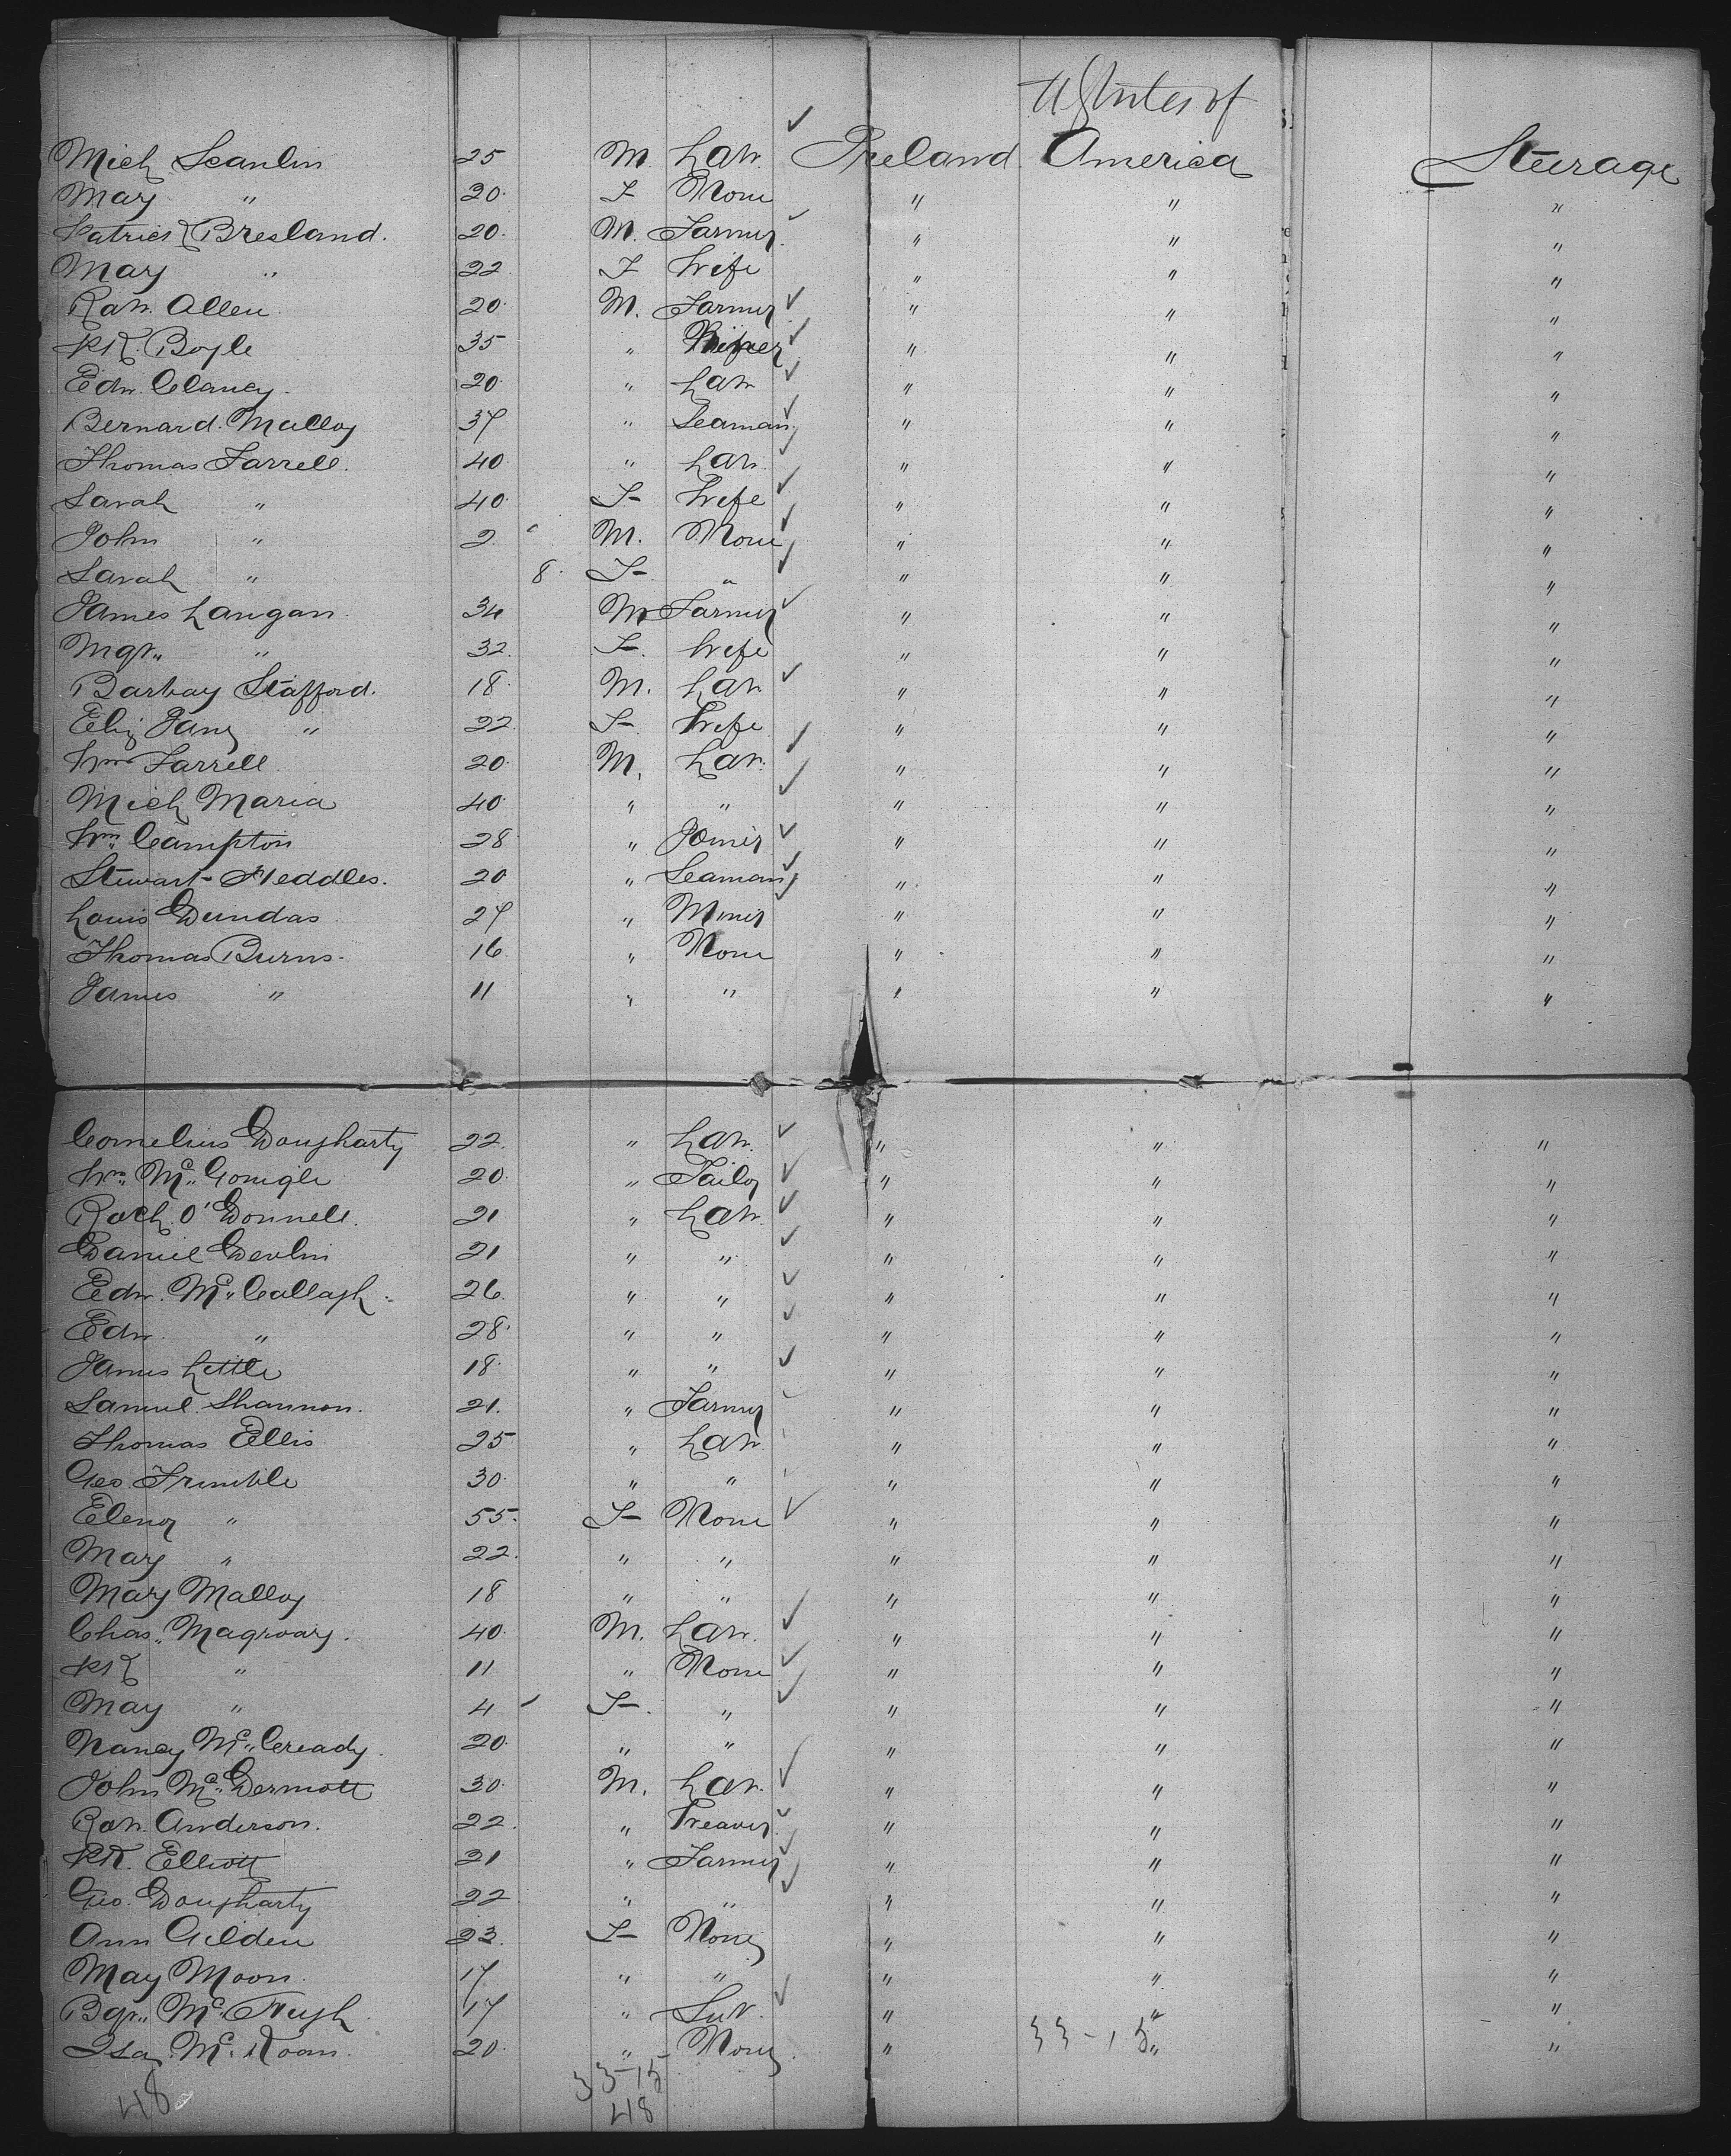 U States of
Mich Scanlin 25 M. Lab. Ireland America Steerage
May " 20 F None " " "
Patrick Bresland. 20. M. Farmer " " "
May " 22 F Wife " " "
Rob. Allen 20. M. Farmer " " "
Pk. Boyle 35 " " " "
Edw. Clancy. 20 " Lab " " "
Bernard Malloy 37 " Seaman " " "
Thomas Farrell. 40 " Lab. " " "
Sarah " 40. F Wife " " "
John " 2 M. None " " "
Sarah " 8. F " " " "
James Langan 34 M Farmer " " "
Mgt. " 32. F. Wife " " "
Barbay Stafford. 18. M. Lab " " "
Eliz Jane " 22 F Wife " " "
Wm Farrell 20. M. Lab. " " "
Mich Maria 40. " " " " "
Wm. Campton 28 " Joiner " " "
Stewart Heddles. 20 " Seaman " " "
Louis Dundas 27 " Miner " " "
Thomas Burns. 16 " None " " "
James " 11 " " " " "
Cornelius Dougharty 22. " Lab. " " "
Wm. Mc. Gonigle 20. " Tailor " " "
Roch. O'Donnell. 21 " Lab. " " "
Daniel Devlin 21 " " " " "
Edw. Mc. Callagh. 26. " " " " "
Edw. " 28. " " " " "
James Little 18. " " " " "
Samuel Shannon. 21. " Farmer " " "
Thomas Ellis 25 " Lab " " "
Geo. Trimble 30. " " " " "
Elenor " 55. F None " " "
Mary " 22. " " " " "
Mary Malloy 18 " " " " "
Chas. Magroary. 40. M. Lab. " " "
Pk " 11 " None " " "
May " 4 F. " " " "
Nancy Mc. Cready. 20. " " " " "
John Mc. Dermott 30. M. Lab. " " "
Rob. Anderson. 22. " Weaver " " "
Pk. Elliott 21 " Farmer " " "
Geo. Dougharty 22 " " " " "
Ann Gilden 23. F None " " "
May Moon. 17 " " " " "
Bgt. Mc. Hugh. 17 " Sert. " " "
Isa. Mc. Koan 20. " None " 33-15 " "
48 33-15
48